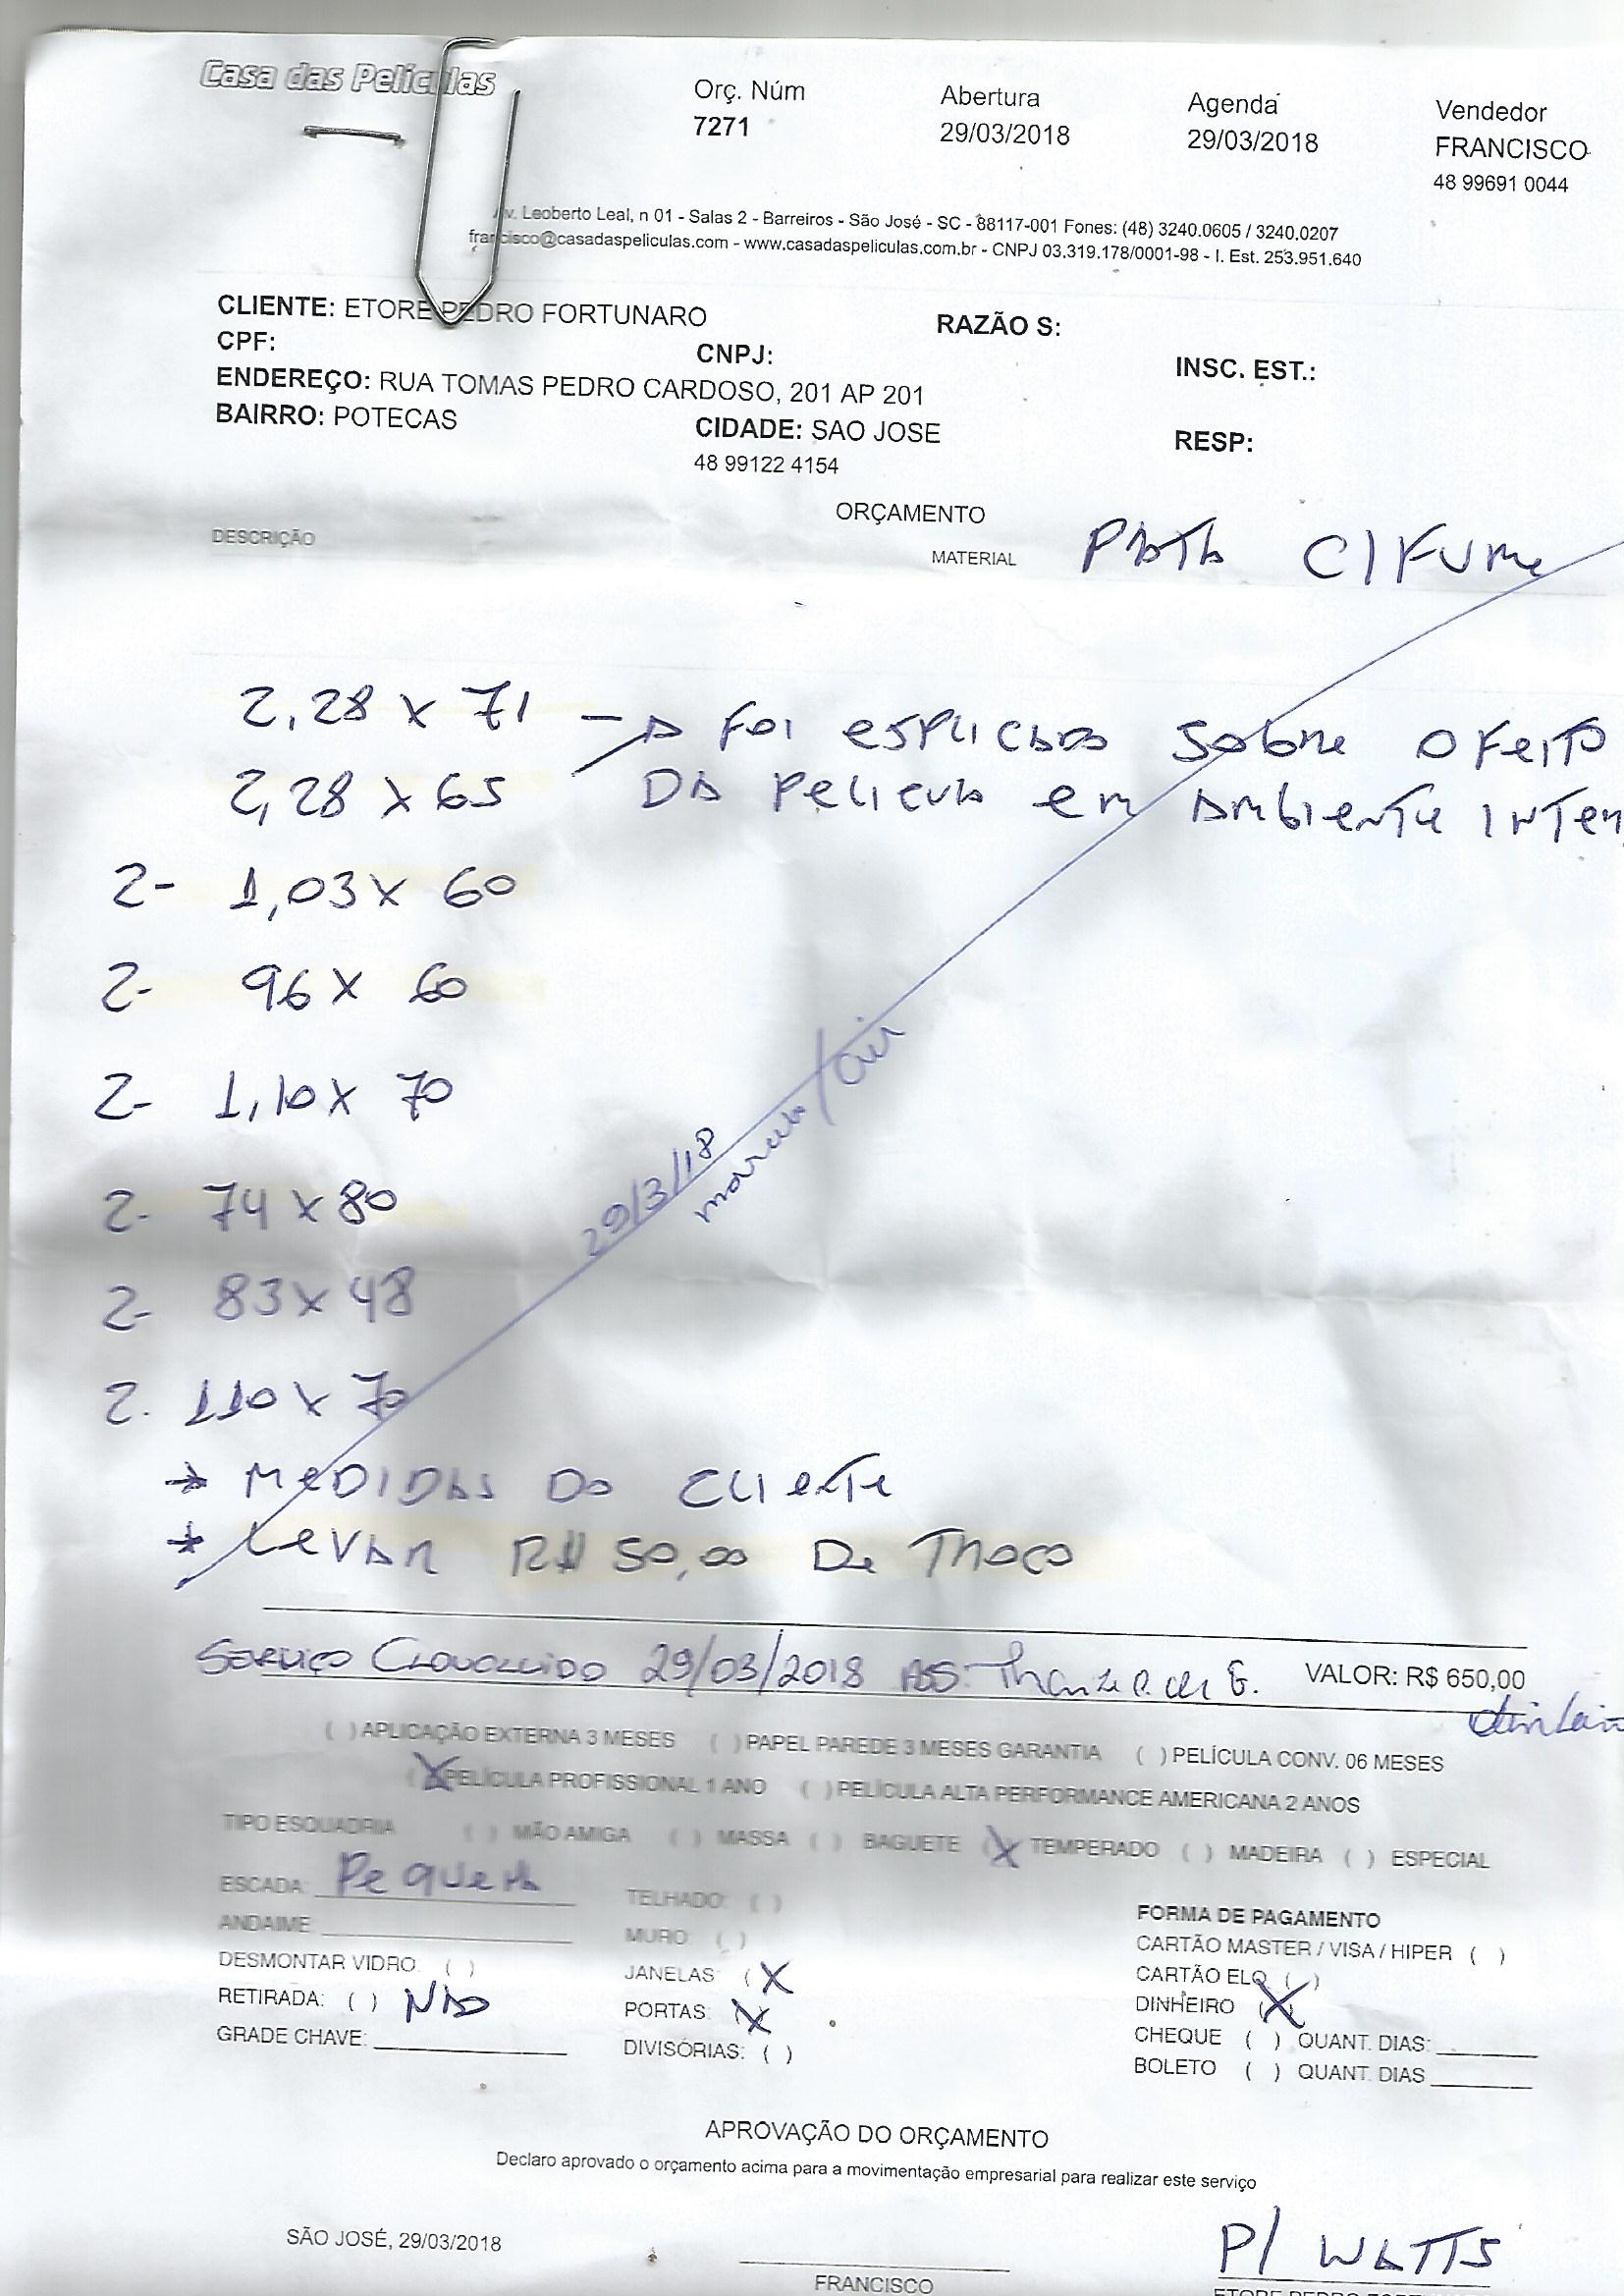 Casa das Películas
Orç. Núm
7271
Abertura
29/03/2018
Agenda
29/03/2018
Vendedor
FRANCISCO
48 99691 0044
Av. Leoberto Leal, n 01 - Salas 2 - Barreiros - São José - SC - 88117-001 Fones: (48) 3240.0605 / 3240.0207
francisco@casadaspeliculas.com - www.casadaspeliculas.com.br - CNPJ 03.319.178/0001-98 - I. Est. 253.951.640
CLIENTE: ETORE PEDRO FORTUNARO
RAZÃO S:
CPF:
CNPJ:
INSC. EST.:
ENDEREÇO: RUA TOMAS PEDRO CARDOSO, 201 AP 201
BAIRRO: POTECAS
CIDADE: SAO JOSE
RESP:
48 99122 4154
ORÇAMENTO
DESCRIÇÃO
MATERIAL PRATA C/ FUME
2,28 x 71 - FOI ESPLICADO SOBRE O FEITO
2,28 x 65 DA PELICULA EM AMBIENTE INTER
2- 1,03 x 60
2- 96 x 60
2- 1,10 x 70
2- 74 x 80
2- 83 x 48
2. 110 x 70
29/3/18
→ MEDIDAS DO CLIENTE
→ LEVAR R$ 50,00 DE TROCO
SERVIÇO 29/03/2018 ASS: VALOR: R$ 650,00
( ) APLICAÇÃO EXTERNA 3 MESES ( ) PAPEL PAREDE 3 MESES GARANTIA ( ) PELÍCULA CONV. 06 MESES
(X) PELÍCULA PROFISSIONAL 1 ANO ( ) PELÍCULA ALTA PERFORMANCE AMERICANA 2 ANOS
TIPO ESQUADRIA ( ) MÃO AMIGA ( ) MASSA ( ) BAGUETE (X) TEMPERADO ( ) MADEIRA ( ) ESPECIAL
ESCADA: PEQUENA
TELHADO: ( )
FORMA DE PAGAMENTO
ANDAIME:
MURO: ( )
CARTÃO MASTER / VISA / HIPER ( )
DESMONTAR VIDRO: ( )
JANELAS: (X
CARTÃO ELO ( )
RETIRADA: ( ) NÃO
PORTAS: X
DINHEIRO (X)
GRADE CHAVE:
DIVISÓRIAS: ( )
CHEQUE ( ) QUANT. DIAS:
BOLETO ( ) QUANT. DIAS
APROVAÇÃO DO ORÇAMENTO
Declaro aprovado o orçamento acima para a movimentação empresarial para realizar este serviço
SÃO JOSÉ, 29/03/2018
P/ WATTS
FRANCISCO